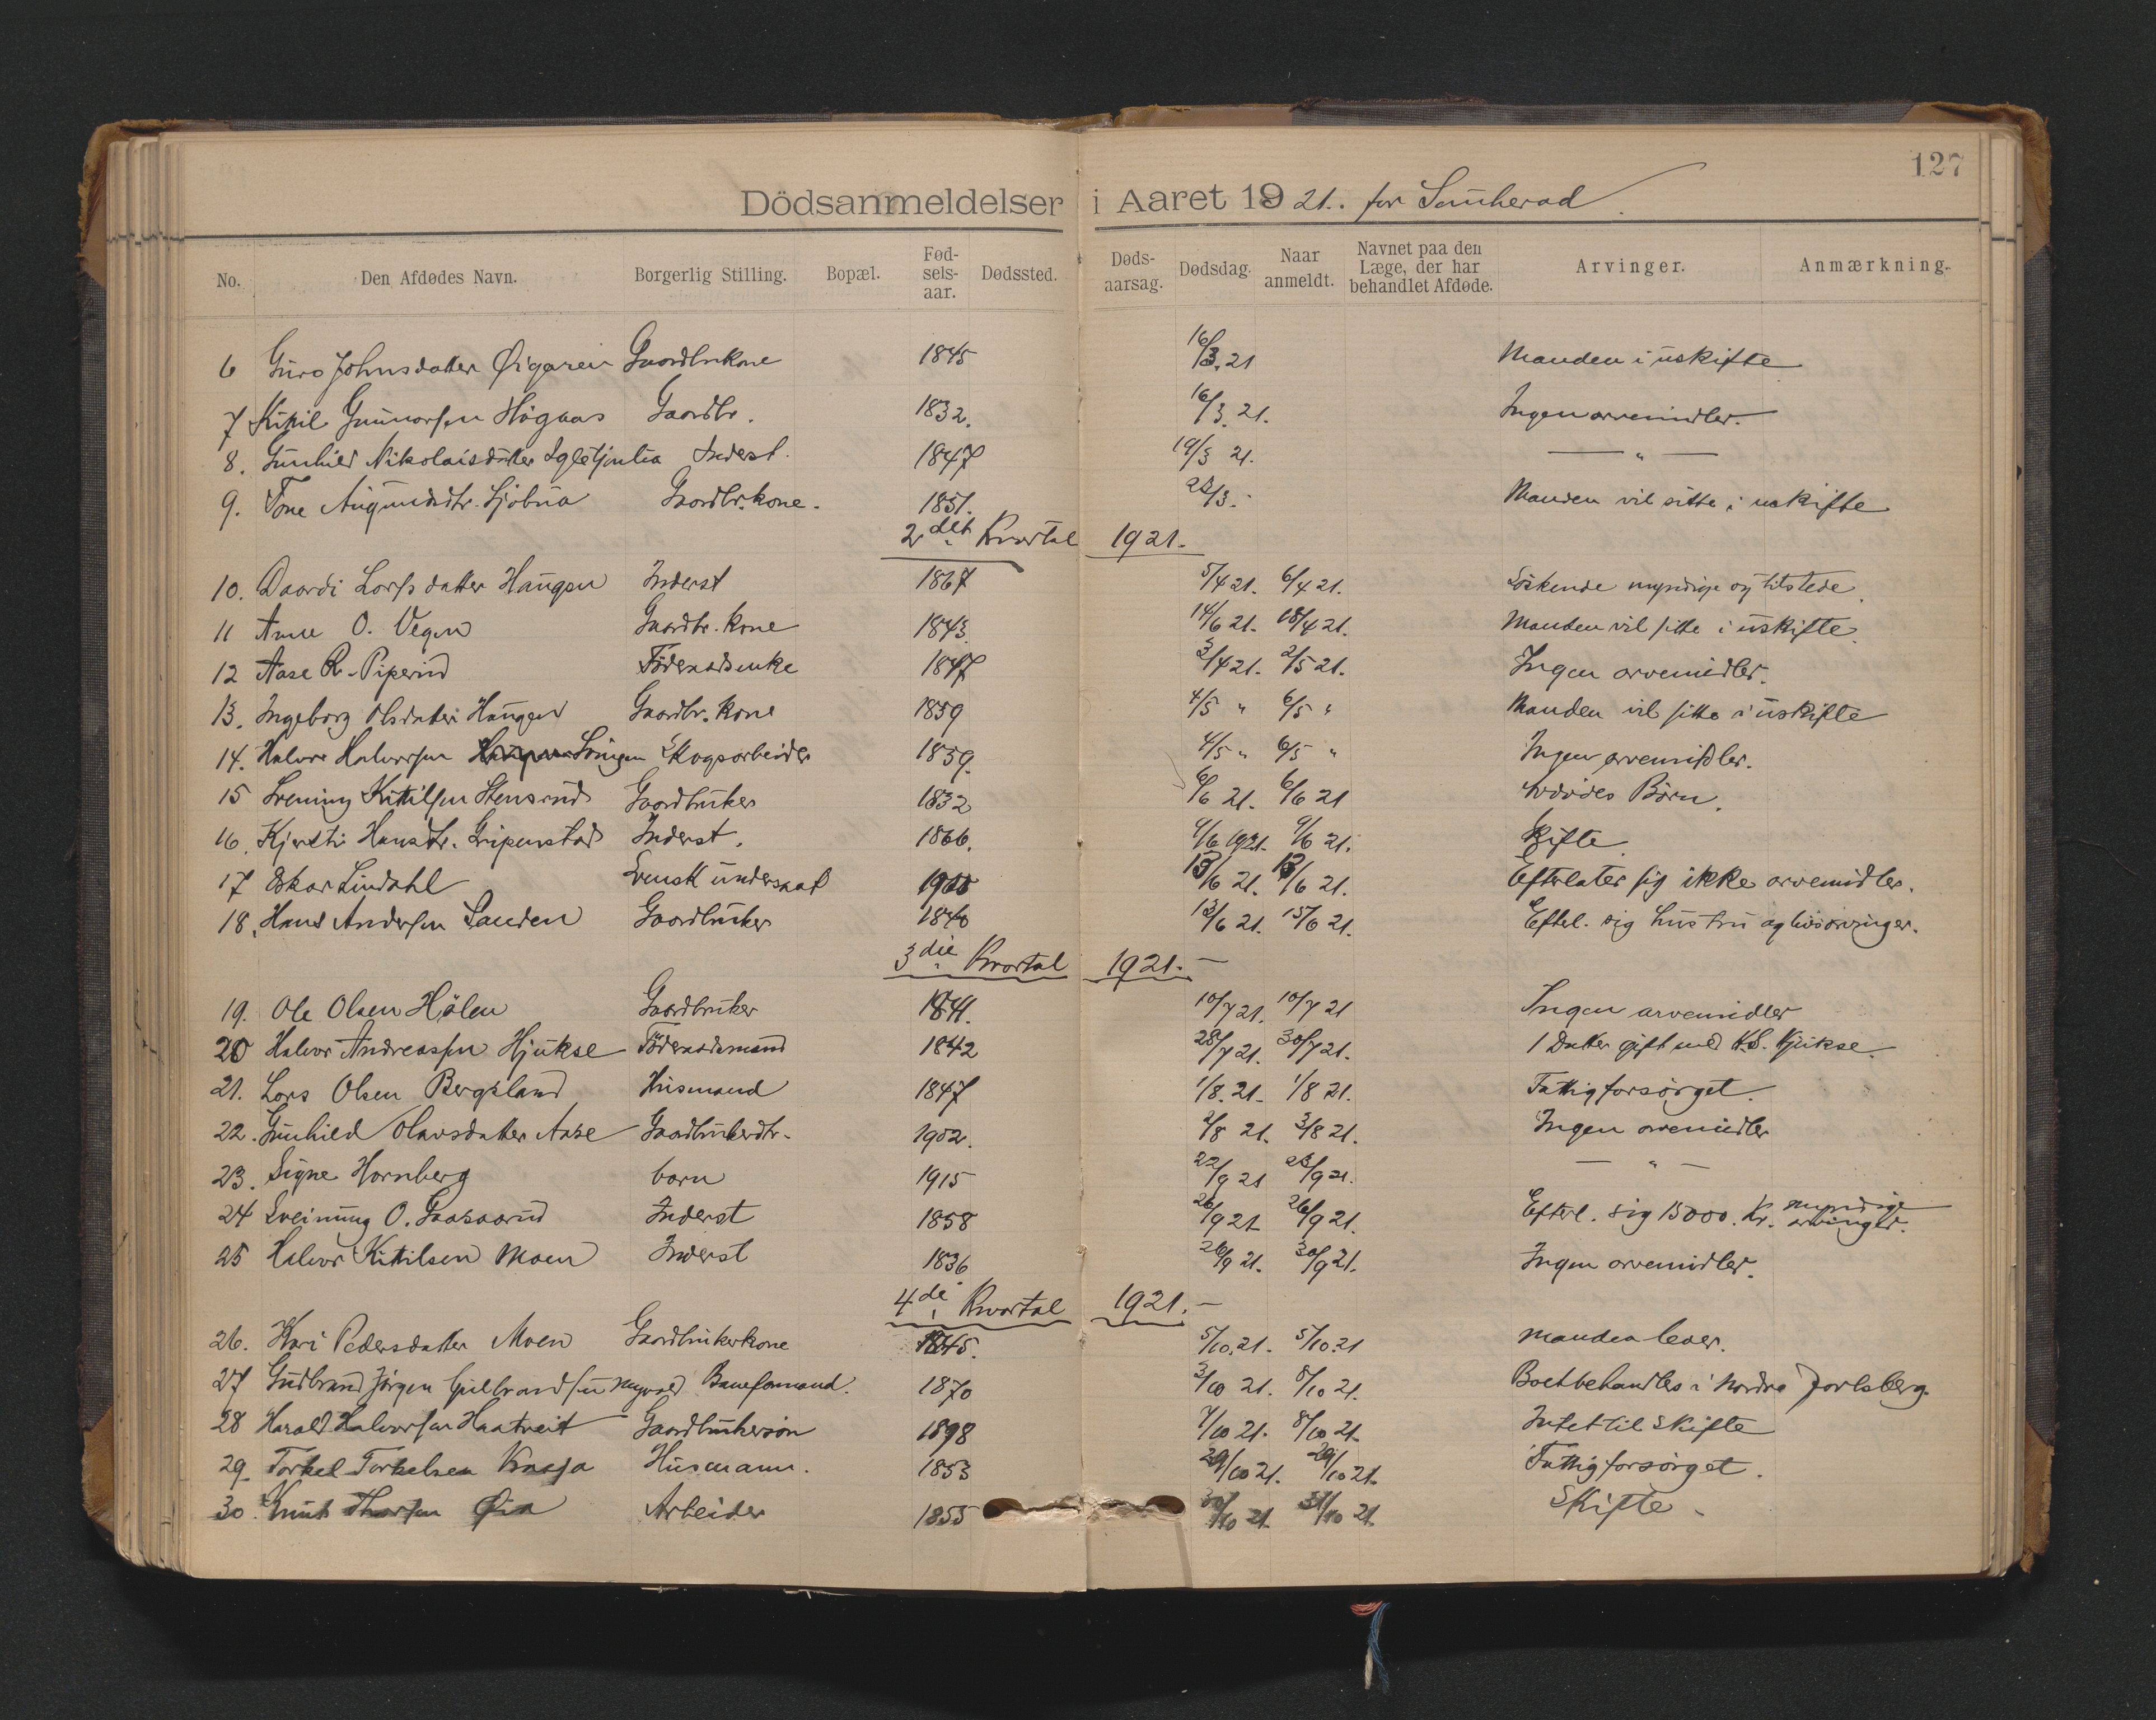 127
Dödsanmeldelser i Aaret 1921. for Sauherad
No. Den Afdødes Navn. Borgerlig Stilling. Bopæl. Fød-sels-aar. Dødssted. Døds-aarsag. Dødsdag. Naar anmeldt. Navnet paa den Læge, der har behandlet Afdøde. Arvinger. Anmærkning.
6 Guro Johnsdatter Øigaren Gaardbrkone 1845 16/3.21 Manden i uskifte
7 Kittil Gunnarsen Høgaas Gaardbr. 1832. 16/3.21. Ingen arvemidler.
8. Gunhild Nikolaisdatter Inderst. 1847 19/3 21. — " —
9. Tone Aamundsdtr. Sjøbua Gaardbr.kone. 1851. 22/3. Manden vil sitte i uskifte
2det Kvartal 1921.
10. Daardi Larsdatter Haugen Inderst 1867 5/4 21. 6/4 21. Söskende myndige og tilstede.
11 Anne O. Vegen Gaardbr. kone 1843. 14/6 21. 18/4 21. Manden vil sitte i uskifte.
12 Aase R. Piperud Föderaadsenke 1847 3/4 21. 2/5 21. Ingen arvemidler.
13. Ingeborg Olsdatter Haugen Gaardbr. kone 1859 4/5 " 6/5 " Manden vil sitte i uskifte
14. Halvor Halvorsen Skogsarbeider 1859. 4/5 " 6/5 " Ingen arvemidler.
15 Sveinung Kittilsen Stensrud Gaardbruker 1832 6/6 21. 6/6 21 Börn.
16. Kjersti Hansdtr. Gripenstad Inderst. 1866. 9/6 1921. 9/6 21. Skifte
17 Oskar Lindahl Svensk undersaat 1900 13/6 21. 13/6 21. Efterlater sig ikke arvemidler.
18. Hans Andersen Sanden Gaardbruker 1840 13/6 21. 15/6 21. Efterl. sig hustru og livsarvinger.
3die Kvartal 1921. —
19. Ole Olsen Hölen Gaardbruker 1841. 10/7 21. 10/7 21 Ingen arvemidler
20 Halvor Andreassen Hjukse Föderaadsmand 1842 28/7 21. 30/7 21. 1 Datter gift med H.S. Hjukse.
21. Lars Olsen Bergsland Husmand 1847 1/8. 21. 1/8 21. Fattigforsörget.
22. Gunhild Olavsdatter Aase Gaardbrukerdtr. 1902. 2/8 21. 3/8 21. Ingen arvemidler
23. Signe Hornberg barn 1915 22/9 21 23/9 21. — " —
24 Sveinung O. Inderst 1858 26/9 21 26/9 21. Efterl. sig 15000. Kr. myndige arvinger.
25 Halvor Kittilsen Moen Inderst 1836 26/9 21. 30/9 21. Ingen arvemidler.
4de Kvartal 1921. —
26. Kari Pedersdatter Moen Gaardbrukerkone 1845. 5/10. 21. 5/10. 21 Manden lever.
27 Gudbrand Jörgen Gulbrandsen Myrvold Baneformand. 1870 3/10 21. 8/10 21. Boet behandles i Nordre Jarlsberg.
28 Harald Halvorsen Haatveit Gaardbrukersön 1898 7/10 21. 8/10 21. Intet til Skifte
29. Torkel Torkelsen Kaasa Husmann. 1853 29/10 21. 29/10 21. Fattigforsörget.
30. Knut Thorsen Øia Arbeider 1855 30/10 21. 31/10 21. Skifte.